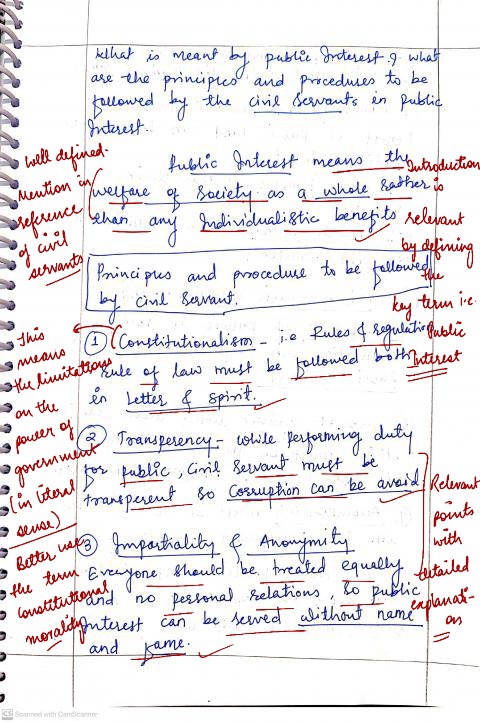 What is meant by public Interest? what
are the principles and procedures to be
followed by the civil servants in public
Interest.
Public Interest means the
welfare of society as a whole rather
than any Individualistic benefits
Principles and procedure to be followed
by civil servant.
① Constitutionalism - i.e Rules & regulation
rule of law must be followed both
in letter & spirit.
② Transperency - while performing duty
for public, Civil Servant must be
transperent so corruption can be avoid
③ Impartiality & Anonymity
Everyone should be treated equally
and no personal relations, so public
Interest can be served without name
and fame.
well defined.
Mention in
reference
of civil
servants
This
means
the limitations
on the
power of
government
(in literal
sense)
Better use
the term
constitutional
morality
Introduction
is
relevant
by defining
the
key term i.e.
Public
Interest
Relevant
points
with
detailed
explanati-
on
CS Scanned with CamScanner